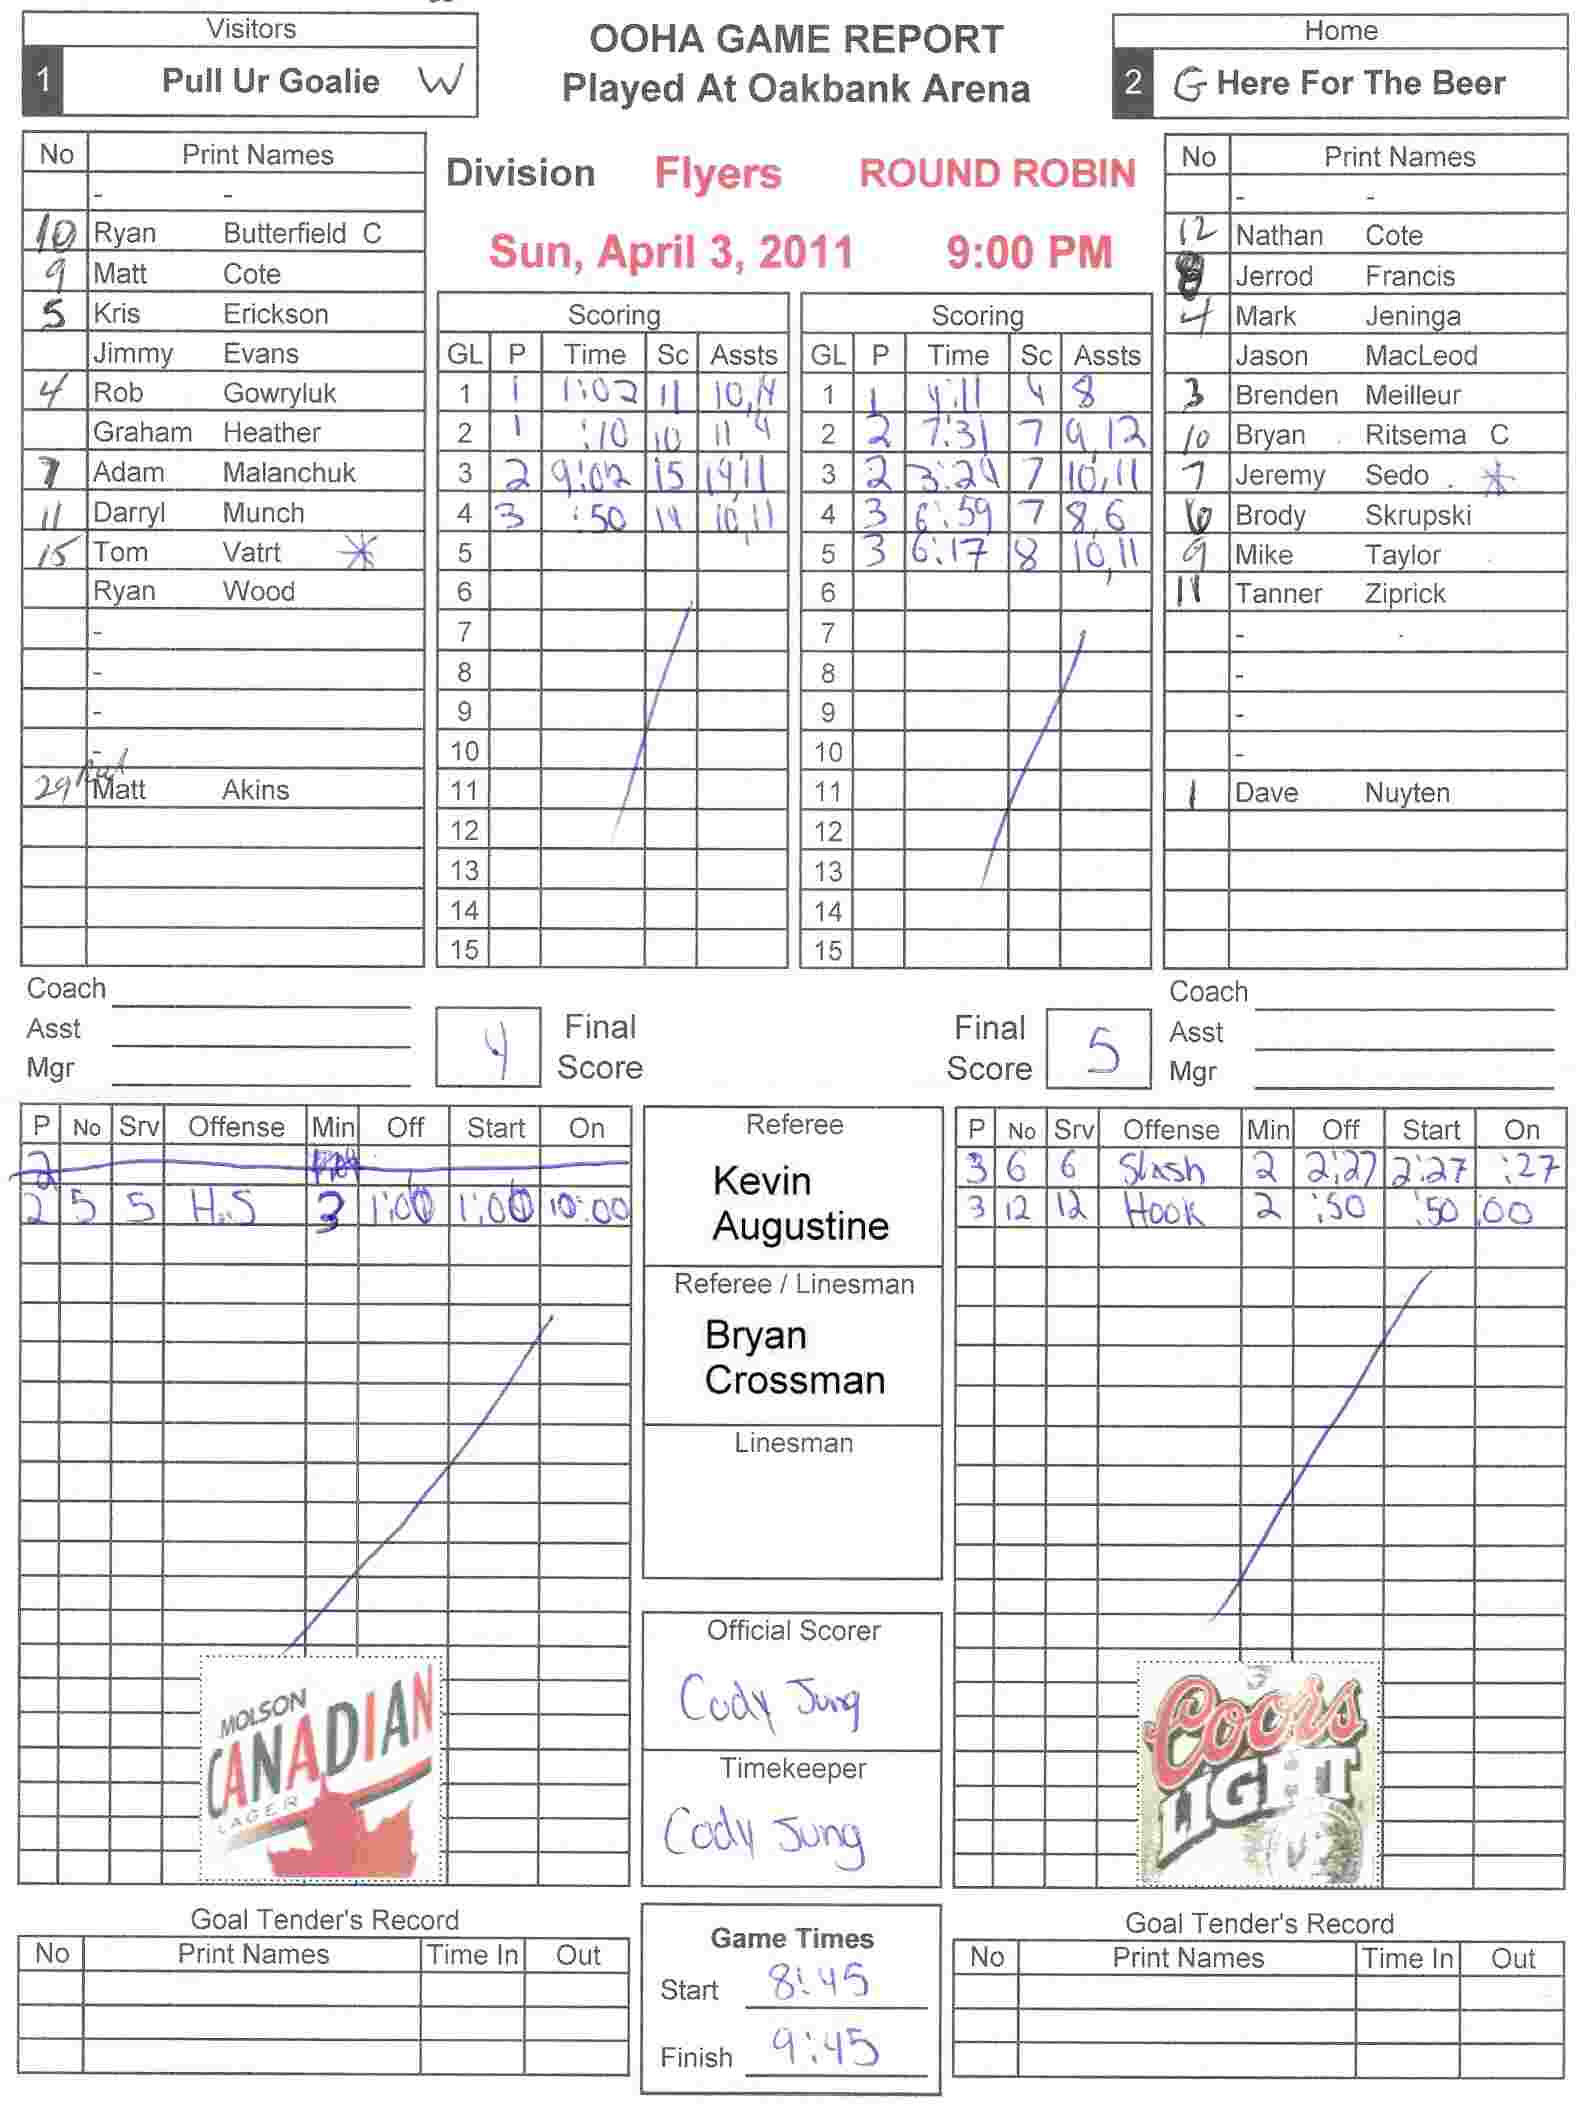 Visitors
1 Pull Ur Goalie W
OOHA GAME REPORT
Played At Oakbank Arena
Home
2 G Here For The Beer
No Print Names
- -
10 Ryan Butterfield C
9 Matt Cote
5 Kris Erickson
Jimmy Evans
4 Rob Gowryluk
Graham Heather
7 Adam Malanchuk
11 Darryl Munch
15 Tom Vatrt *
Ryan Wood
-
-
-
-
29 Matt Akins
Division Flyers ROUND ROBIN
Sun, April 3, 2011 9:00 PM
Scoring
GL P Time Sc Assts
1 1 1:02 11 10,14
2 1 :10 10 11 4
3 2 9:02 15 14,11
4 3 :50 14 10,11
5
6
7
8
9
10
11
12
13
14
15
Scoring
GL P Time Sc Assts
1 1 4:11 4 8
2 2 7:31 7 9,12
3 2 3:29 7 10,11
4 3 6:59 7 8,6
5 3 6:17 8 10,11
6
7
8
9
10
11
12
13
14
15
No Print Names
- -
12 Nathan Cote
8 Jerrod Francis
4 Mark Jeninga
Jason MacLeod
3 Brenden Meilleur
10 Bryan Ritsema C
7 Jeremy Sedo *
6 Brody Skrupski
9 Mike Taylor
11 Tanner Ziprick
-
-
-
-
1 Dave Nuyten
Coach
Asst
Mgr
4 Final Score
Final Score 5
Coach
Asst
Mgr
P No Srv Offense Min Off Start On
2
2 5 5 H.S 3 1:00 1:00 10:00
Referee
Kevin
Augustine
Referee / Linesman
Bryan
Crossman
Linesman
P No Srv Offense Min Off Start On
3 6 6 Slash 2 2:27 2:27 :27
3 12 12 Hook 2 :50 :50 :00
MOLSON
CANADIAN
LAGER
Official Scorer
Cody Jung
Timekeeper
Cody Jung
Coors
LIGHT
Goal Tender's Record
No Print Names Time In Out
Game Times
Start 8:45
Finish 9:45
Goal Tender's Record
No Print Names Time In Out